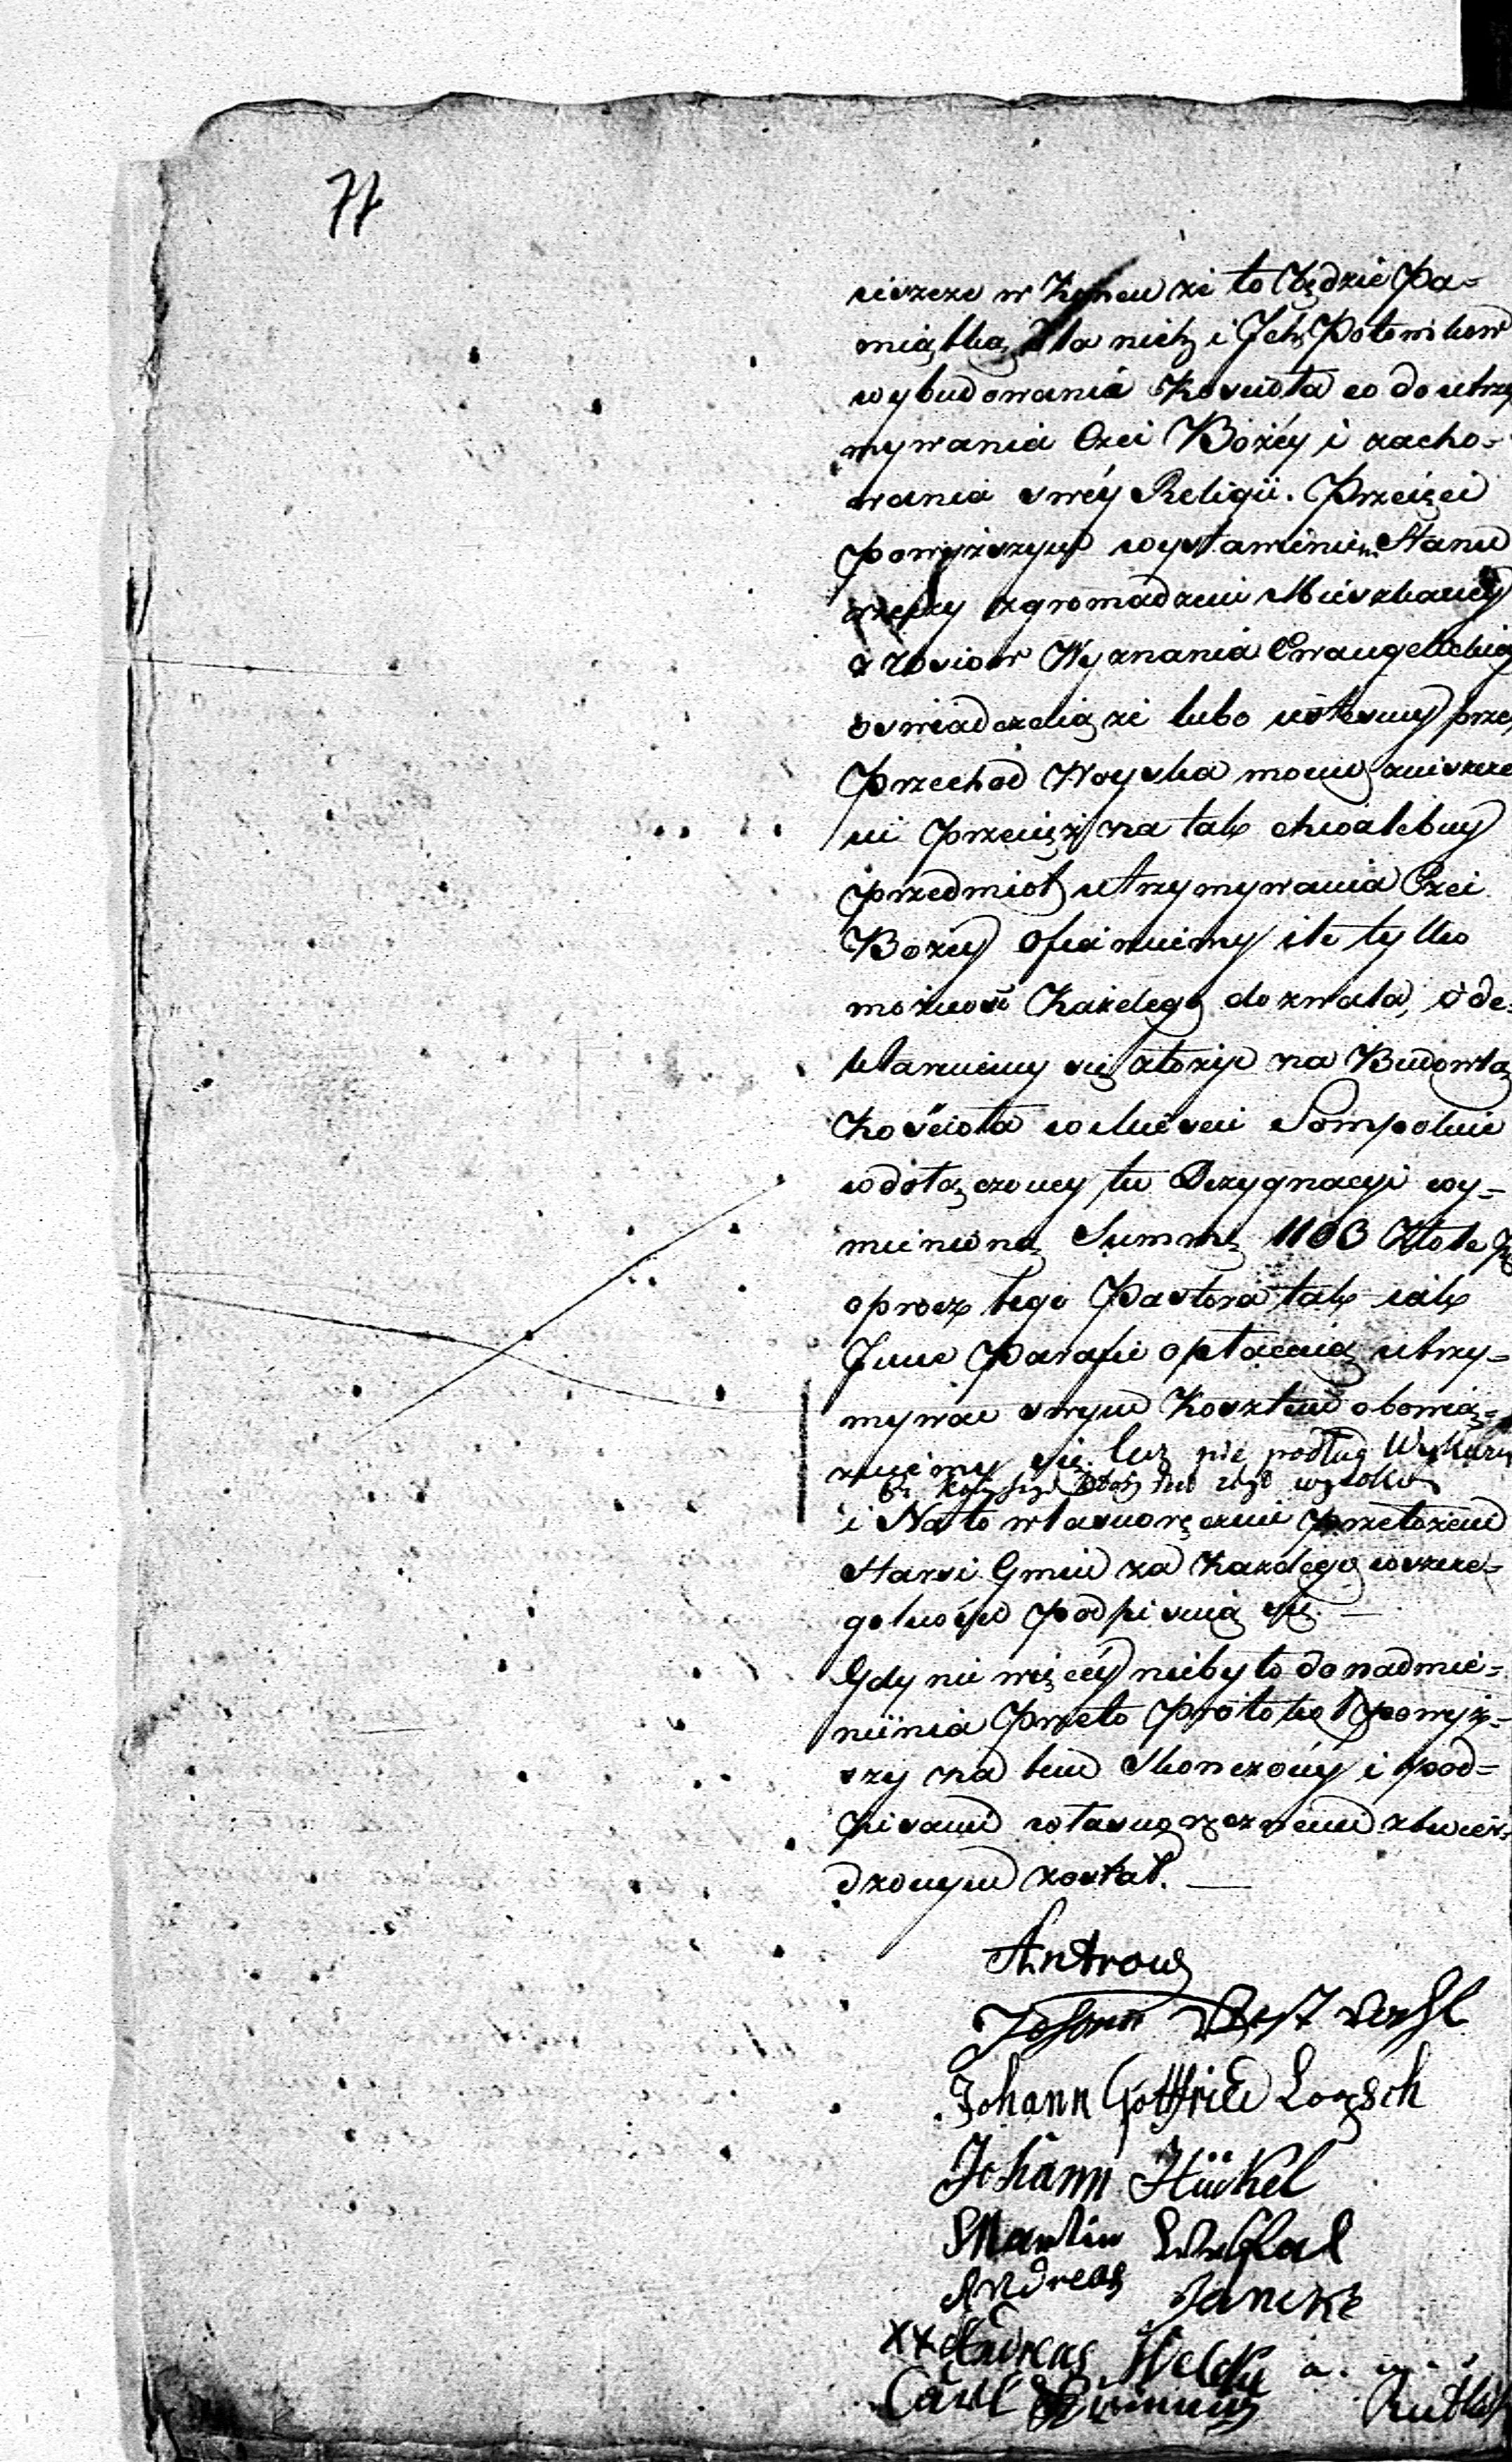 77
w Koncu że to będzie Pa-
miątką dla nich i Jch Potomkow
wybudowania Koscioła co do utrzy
mywania Czci Bożéy i zacho-
wania swéy Religii. Przeięci
powyższym wystawieniem Stanu
rzeczy zgromadzeni Mieszkancy
z Wyznania Ewangelickieg
oswiadczaią że lubo iestesmy prze
Przechod Woyska mocno zniszcze
ni przecięż na tak chwalebny
przedmiot utrzymywania Czci
Bozey ofiaruiemy ile tylko
możność Każdego dozwala, i de-
klaruiemy się złożyć na Budowlą
Kościoła w Mieście Sompolnie
w dołączoney tu Dezygnacyi wy-
mienioną Summę 1103 Złote
oprocz tego Pastora tak iak
Jnne Parafie opłacaią utrzy-
mywać swym Kosztem obowią-
zuiemy się. lecz nie podług Wykazu
i Na to własnoręcznie przełożeni
Starsi Gmin za Każdego wszcze-
golności podpisuią się. —
Gdy nic więcéy niebyło do nadmie-
nienia Przeto Protokoł powyż-
szy na tem Skonczony i pod-
pisami własnoręcznemi ztwier-
dzonym został. —
Johann
Johann Gottfried Loozsch
Johann Hückel
Martin
Andreas Jancke
xxx Andreas
Carl